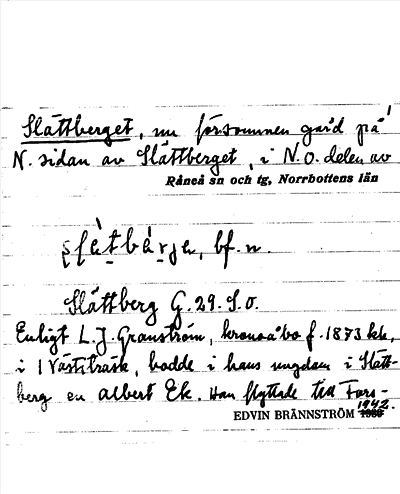 Slättberget, nu försvunnen gård på
N. sidan av Slättberget, i N.O. delen av
Råneå sn och tg, Norrbottens län
bf. n.
Slättberg G. 29. S.O.
Enligt L. J. Granström, kronoåbo f. 1873 kk,
i Västiträsk, bodde i hans ungdom i Slätt-
berg en Albert Ek. Han flyttade till Fors-
1942.
EDVIN BRÄNNSTRÖM 1930